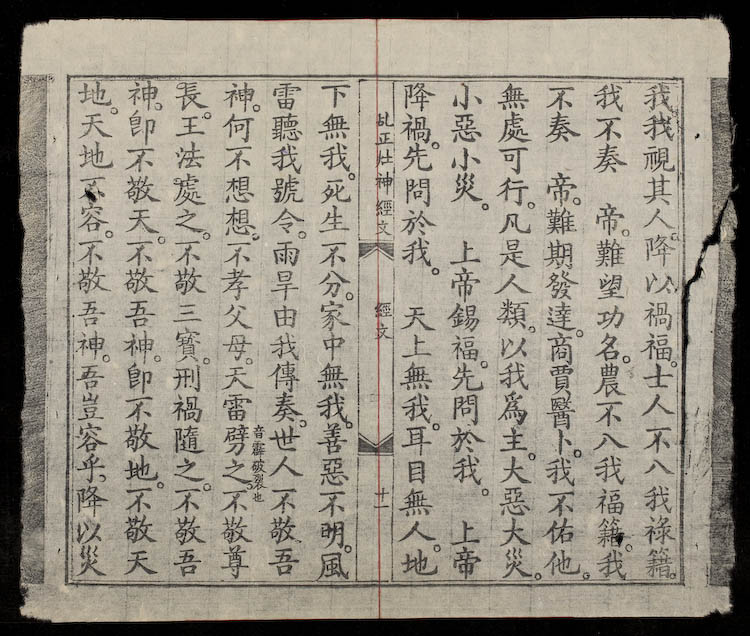 我我視其人。降以禍福。士人不入我祿籍。
我不奏　帝。難望功名。農不入我福籍。我
不奏　帝。難期發達。商賈醫卜。我不佑他。
無處可行。凡是人類。以我為主。大惡大災。
小惡小災。　上帝錫福。先問於我。　上帝
降禍。先問於我。　天上無我。耳目無人。地
乩正灶神經文　經文　十一
下無我。死生不分。家中無我。善惡不明。風
雷聽我號令。雨旱由我傳奏。世人不敬吾
神。何不想想。不孝父母。天雷劈之。音霹破裂也不敬尊
長。王法處之。不敬三寶。刑禍隨之。不敬吾
神。卽不敬天。不敬吾神。卽不敬地。不敬天
地。天地不容。不敬吾神。吾豈容乎。降以災